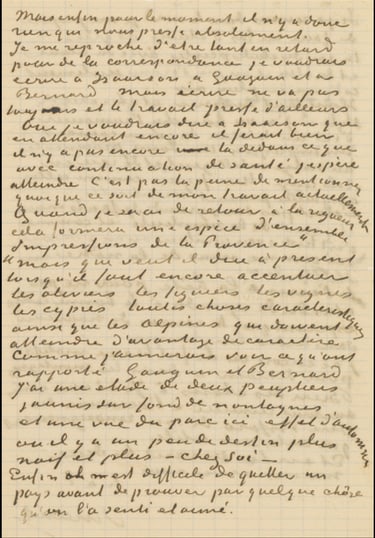 Mais enfin pour le moment il n'y a donc
rien qui nous presse absolument.
Je me reproche d'etre tant en retard
pour de la correspondance je voudrais
ecrire à Isaacson à Gauguin et à
Bernard mais ecrire ne va pas
toujours et le travail presse d'ailleurs
Oui je voudrais dire à Isaacson que
en attendant encore il ferait bien
il n'y a pas encore la dedans ce que
avec continuation de santé j'espère
atteindre C'est pas la peine de mentionner
quoique ce soit de mon travail actuellement
Quand je serai de retour à la rigueur
cela formera une espèce d'ensemble
"Impressions de la Provence"
mais que veut il dire à present
lorsqu'il faut encore accentuer
les oliviers les figuiers les vignes
les cyprès toutes choses caracteristiques
ainsi que les Alpines qui doivent
atteindre d'avantage de caractère
Comme j'aimerais voir ce qu'ont
rapporté Gauguin et Bernard
J'ai une etude de deux peupliers
jaunis sur fond de montagnes
et une vue du parc ici effet d'automne
où il y a un peu de dessin plus
naïf et plus – chez soi –
Enfin oh m'est difficile de quitter un
pays avant de prouver par quelque chôse
qu'on l'a senti et aimé.